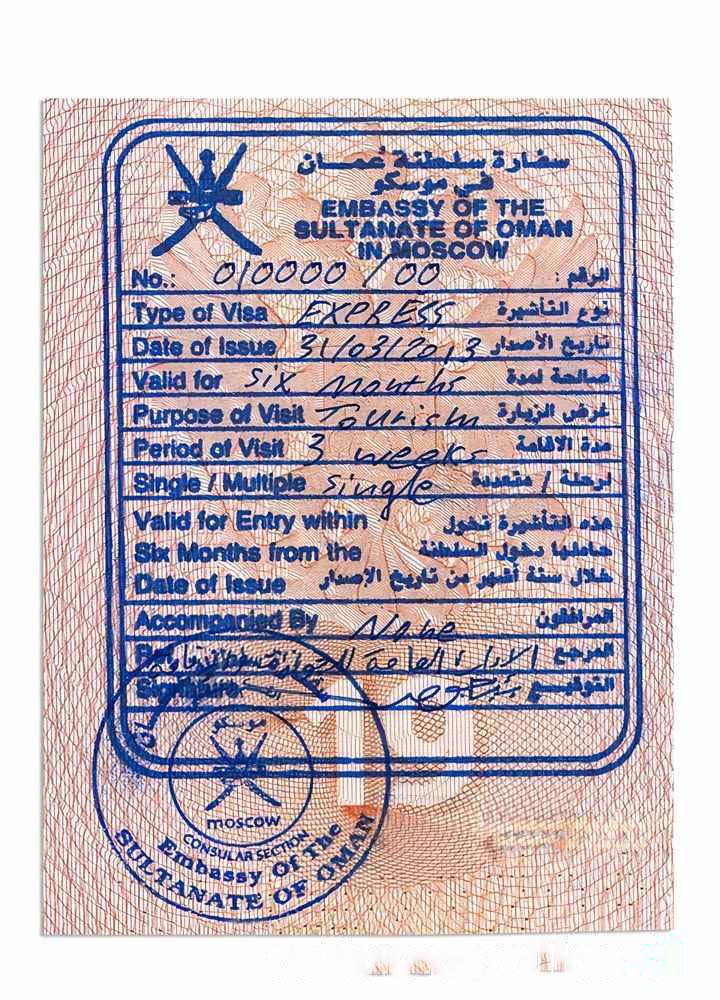 سفارة سلطنة عُمان
في موسكو
EMBASSY OF THE
SULTANATE OF OMAN
IN MOSCOW
No.: 010000 / 00 الرقم :
Type of Visa EXPRESS نوع التأشيرة
Date of Issue 31/03/2013 تاريخ الأصدار
Valid for Six Months صالحة لمدة
Purpose of Visit Tourism غرض الزيارة
Period of Visit 3 weeks مدة الاقامة
Single / Multiple Single لرحلة / متعددة
Valid for Entry within هذه التأشيرة تخول
Six Months from the حاملها دخول السلطنة
Date of Issue خلال ستة أشهر من تاريخ الإصدار
Accompanied By None المرافقون
المرجع
Signature التوقيع
19
موسكو
MOSCOW
CONSULAR SECTION
Embassy Of The
SULTANATE OF OMAN